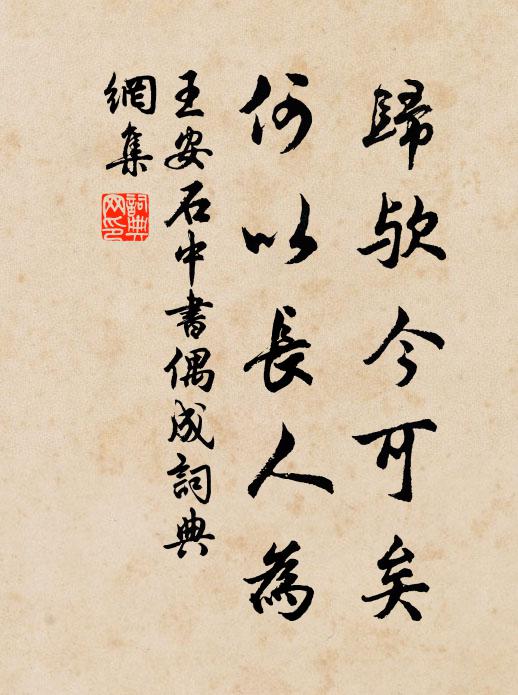 歸欤今可矣
何以長人為
王安石中書偶成詞典
網集
詞典网印